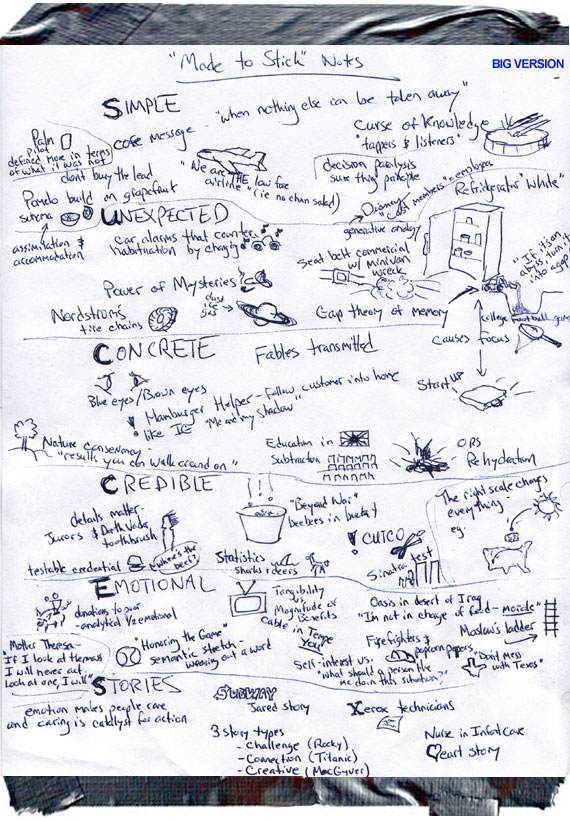 "Made to Stick" Notes
BIG VERSION
SIMPLE
"when nothing else can be taken away"
core message
Palm
pilot
defined more in terms
of what it was not
Curse of Knowledge
"tappers & listeners"
don't bury the lead
"We are THE low fare
airline" (ie no chx salad)
decision paralysis
sure thing principle
Pomelo build on grapefruit
schema
Disney "Cast members" = employees
UNEXPECTED
generative analogy
Refrigerator "White"
assimilation &
accommodation
Car alarms that counter
habituation by changing
Seat belt commercial
w/ minivan
wreck
"If it's an
abyss turn it
into a gap"
Power of Mysteries
dust
ice
gas
Nordstrom's
tire chains
Gap theory of memory
college football game
causes focus
CONCRETE
Fables transmitted
Blue eyes/Brown eyes
Start up
Hamburger Helper - follow customer into home
like IE "Me and my shadow"
Nature Conservancy -
"results you can walk around on"
Education in
Subtraction
ORS
Rehydration
CREDIBLE
The right scale changes
everything -
eg.
details matter -
Jurors & Darth Vader
toothbrush
"Beyond War"
beebees in bucket
! CUTCO
Sinatra test
testable credential
where's the
beef?
Statistics
sharks & deers
EMOTIONAL
Tangibility
vs.
Magnitude of
Benefits
Cable in Tempe
You!
Oasis in desert of Iraq
"I'm not in charge of food - morale"
donations to poor
- analytical vs emotional
Maslow's ladder
Mother Theresa -
If I look at the mass
I will never act.
Look at one, I will"
"Honoring the Game"
semantic stretch -
wearing out a word
Firefighters &
popcorn poppers
"Don't Mess
with Texas"
Self-interest vs.
"What should a person like
me do in this situation?"
STORIES
SUBWAY
Jared story
Xerox technicians
emotion makes people care
and caring is catalyst for action
3 Story types
- Challenge (Rocky)
- Connection (Titanic)
- Creative (MacGyver)
Nurse in Infant Care
Heart story